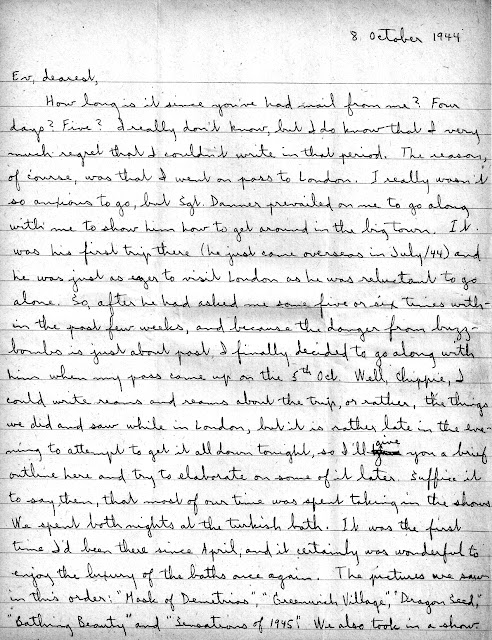 8 October 1944
Ev, dearest,
How long is it since you've had mail from me? Four
days? Five? I really don't know, but I do know that I very
much regret that I couldn't write in that period. The reason,
of course, was that I went on pass to London. I really wasn't
so anxious to go, but Sgt. Danner prevailed on me to go along
with me to show him how to get around in the big town. It
was his first trip there (he just came overseas in July/44) and
he was just as eager to visit London as he was reluctant to go
alone. So, after he had asked me some five or six times with-
in the past few weeks, and because the danger from buzz-
bombs is just about past I finally decided to go along with
him when my pass came up on the 5th Oct. Well, Chippie, I
could write reams and reams about the trip, or rather, the things
we did and saw while in London, but it is rather late in the eve-
ning to attempt to get it all down tonight, so I'll give you a brief
outline here and try to elaborate on some of it later. Suffice it
to say, then, that most of our time was spent taking in the shows.
We spent both nights at the turkish bath. It was the first
time I'd been there since April, and it certainly was wonderful to
enjoy the luxury of the baths once again. The pictures we saw
in this order: "Mask of Demetrius", "Greenwich Village", "Dragon Seed",
"Bathing Beauty" and "Sensations of 1945". We also took in a show